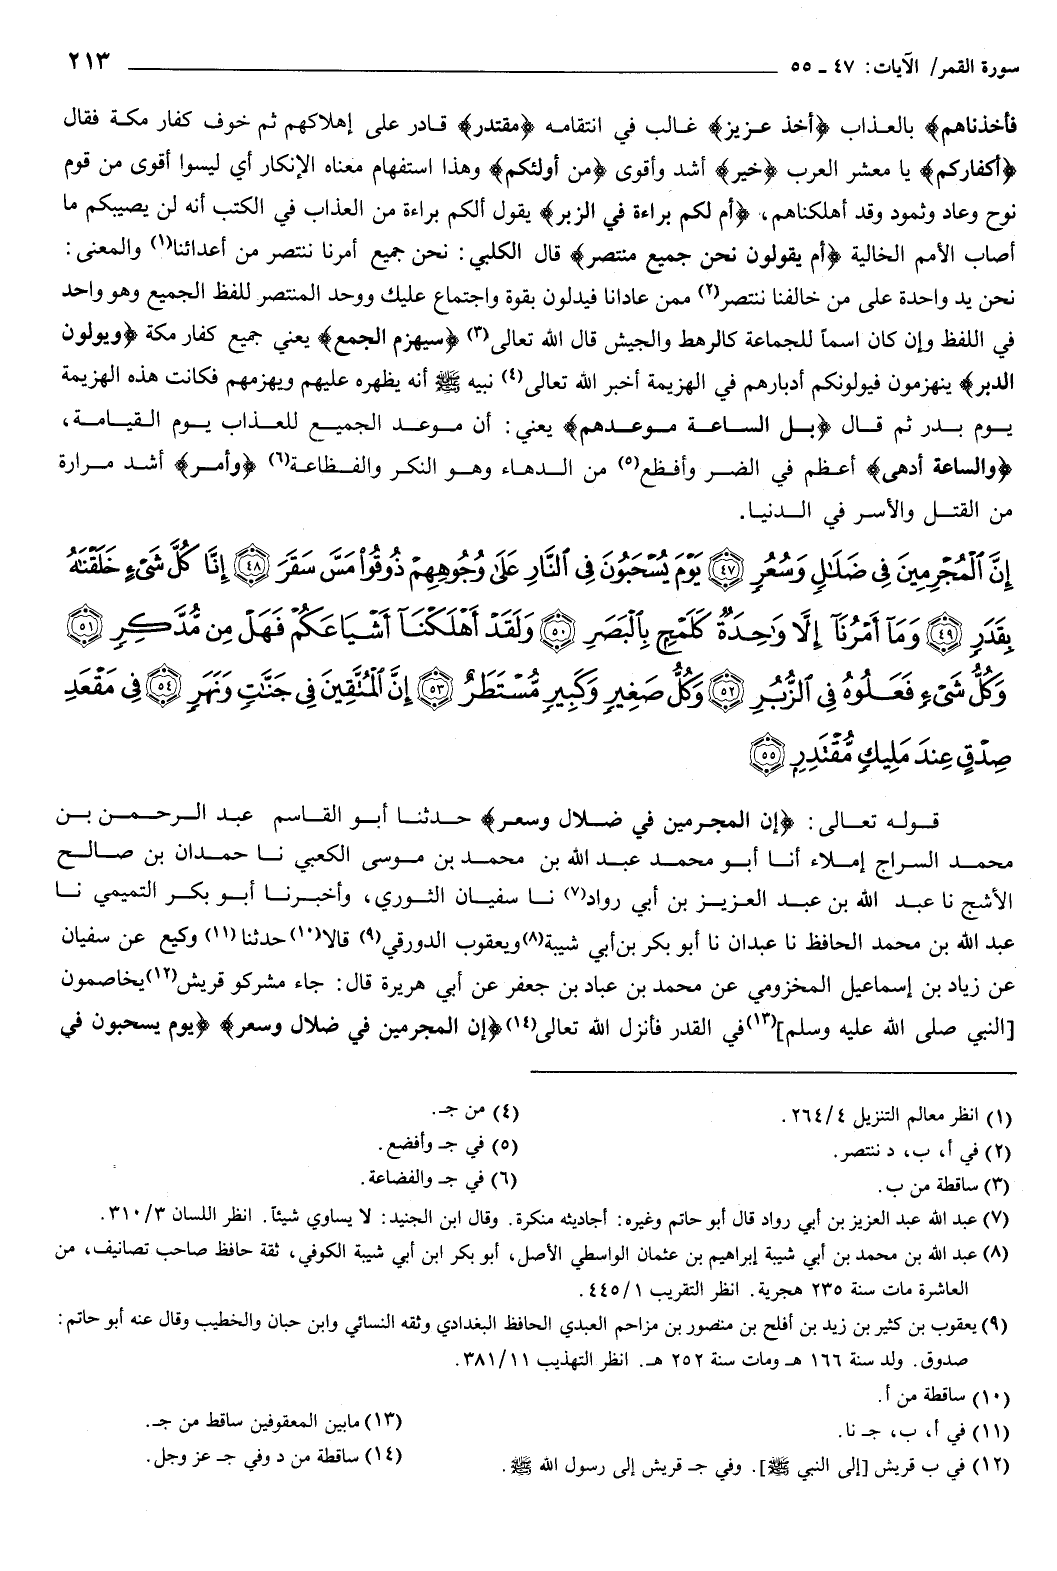 سورة القمر/ الآيات: ٤٧ ـ ٥٥ ٢١٣
فأخذناهم﴾ بالعذاب ﴿أخذ عزيز﴾ غالب في انتقامه ﴿مقتدر﴾ قادر على إهلاكهم ثم خوف كفار مكة فقال
﴿أكفاركم﴾ يا معشر العرب ﴿خير﴾ أشد وأقوى ﴿من أولئكم﴾ وهذا استفهام معناه الإنكار أي ليسوا أقوى من قوم
نوح وعاد وثمود وقد أهلكناهم، ﴿أم لكم براءة في الزبر﴾ يقول ألكم براءة من العذاب في الكتب أنه لن يصيبكم ما
أصاب الأمم الخالية ﴿أم يقولون نحن جميع منتصر﴾ قال الكلبي: نحن جميع أمرنا ننتصر من أعدائنا(١) والمعنى:
نحن يد واحدة على من خالفنا ننتصر(٢) ممن عادانا فيدلون بقوة واجتماع عليك ووحد المنتصر للفظ الجميع وهو واحد
في اللفظ وإن كان اسماً للجماعة كالرهط والجيش قال الله تعالى(٣) ﴿سيهزم الجمع﴾ يعني جميع كفار مكة ﴿ويولون
الدبر﴾ ينهزمون فيولونكم أدبارهم في الهزيمة أخبر الله تعالى(٤) نبيه ﷺ أنه يظهره عليهم ويهزمهم فكانت هذه الهزيمة
يوم بدر ثم قال ﴿بل الساعة موعدهم﴾ يعني: أن موعد الجميع للعذاب يوم القيامة،
﴿والساعة أدهى﴾ أعظم في الضر وأفظع(٥) من الدهاء وهو النكر والفظاعة(٦) ﴿وأمر﴾ أشد مرارة
من القتل والأسر في الدنيا.
إِنَّ ٱلْمُجْرِمِينَ فِى ضَلَٰلٍ وَسُعُرٍ ﴿٤٧﴾ يَوْمَ يُسْحَبُونَ فِى ٱلنَّارِ عَلَىٰ وُجُوهِهِمْ ذُوقُوا۟ مَسَّ سَقَرَ ﴿٤٨﴾ إِنَّا كُلَّ شَىْءٍ خَلَقْنَٰهُ
بِقَدَرٍ ﴿٤٩﴾ وَمَآ أَمْرُنَآ إِلَّا وَٰحِدَةٌ كَلَمْحٍۭ بِٱلْبَصَرِ ﴿٥٠﴾ وَلَقَدْ أَهْلَكْنَآ أَشْيَاعَكُمْ فَهَلْ مِن مُّدَّكِرٍ ﴿٥١﴾
وَكُلُّ شَىْءٍ فَعَلُوهُ فِى ٱلزُّبُرِ ﴿٥٢﴾ وَكُلُّ صَغِيرٍ وَكَبِيرٍ مُّسْتَطَرٌ ﴿٥٣﴾ إِنَّ ٱلْمُتَّقِينَ فِى جَنَّٰتٍ وَنَهَرٍ ﴿٥٤﴾ فِى مَقْعَدِ
صِدْقٍ عِندَ مَلِيكٍ مُّقْتَدِرٍۭ ﴿٥٥﴾
قوله تعالى: ﴿إن المجرمين في ضلال وسعر﴾ حدثنا أبو القاسم عبد الرحمن بن
محمد السراج إملاء أنا أبو محمد عبد الله بن محمد بن موسى الكعبي نا حمدان بن صالح
الأشج نا عبد الله بن عبد العزيز بن أبي رواد(٧) نا سفيان الثوري، وأخبرنا أبو بكر التميمي نا
عبد الله بن محمد الحافظ نا عبدان نا أبو بكر بن أبي شيبة(٨) ويعقوب الدورقي(٩) قالا(١٠) حدثنا(١١) وكيع عن سفيان
عن زياد بن إسماعيل المخزومي عن محمد بن عباد بن جعفر عن أبي هريرة قال: جاء مشركو قريش(١٢) يخاصمون
[النبي صلى الله عليه وسلم](١٣) في القدر فأنزل الله تعالى(١٤) ﴿إن المجرمين في ضلال وسعر﴾ ﴿يوم يسحبون في
(١) انظر معالم التنزيل ٢٦٤/٤.
(٢) في أ، ب، د ننتصر.
(٣) ساقطة من ب.
(٤) من جـ.
(٥) في جـ وأفضع.
(٦) في جـ والفضاعة.
(٧) عبد الله عبد العزيز بن أبي رواد قال أبو حاتم وغيره: أجاديثه منكرة. وقال ابن الجنيد: لا يساوي شيئاً. انظر اللسان ٣١٠/٣.
(٨) عبد الله بن محمد بن أبي شيبة إبراهيم بن عثمان الواسطي الأصل، أبو بكر ابن أبي شيبة الكوفي، ثقة حافظ صاحب تصانيف، من
العاشرة مات سنة ٢٣٥ هجرية. انظر التقريب ٤٤٥/١.
(٩) يعقوب بن كثير بن زيد بن أفلح بن منصور بن مزاحم العبدي الحافظ البغدادي وثقه النسائي وابن حبان والخطيب وقال عنه أبو حاتم:
صدوق. ولد سنة ١٦٦ هـ ومات سنة ٢٥٢ هـ. انظر التهذيب ٣٨١/١١.
(١٠) ساقطة من أ.
(١١) في أ، ب، جـ نا.
(١٢) في ب قريش [إلى النبي ﷺ]. وفي جـ قريش إلى رسول الله ﷺ.
(١٣) مابين المعقوفين ساقط من جـ.
(١٤) ساقطة من د وفي جـ عز وجل.